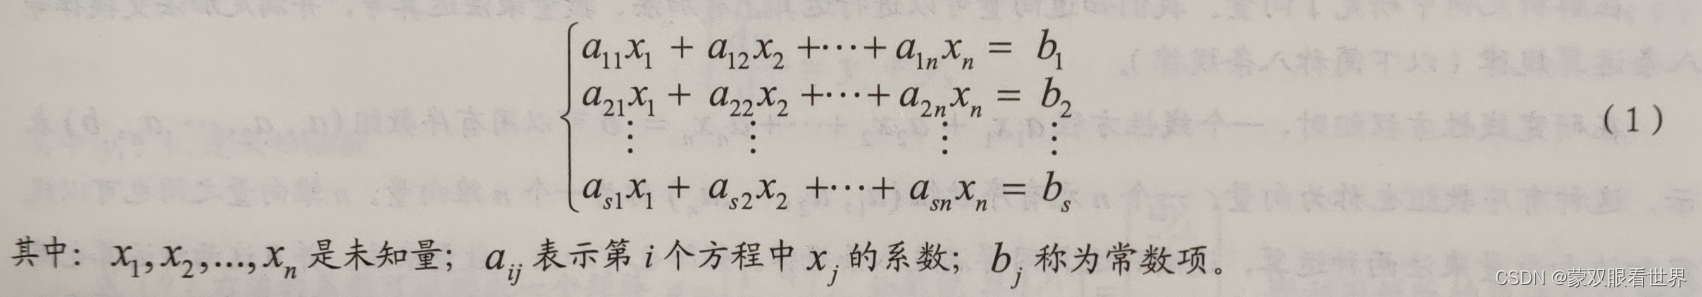 a₁₁x₁ + a₁₂x₂ +⋯+ a₁ₙxₙ = b₁
a₂₁x₁ + a₂₂x₂ +⋯+ a₂ₙxₙ = b₂
⋮ ⋮ ⋮ ⋮ (1)
aₛ₁x₁ + aₛ₂x₂ +⋯+ aₛₙxₙ = bₛ
其中: x₁,x₂,...,xₙ 是未知量; aᵢⱼ 表示第 i 个方程中 xⱼ 的系数; bⱼ 称为常数项。
CSDN @蒙双眼看世界